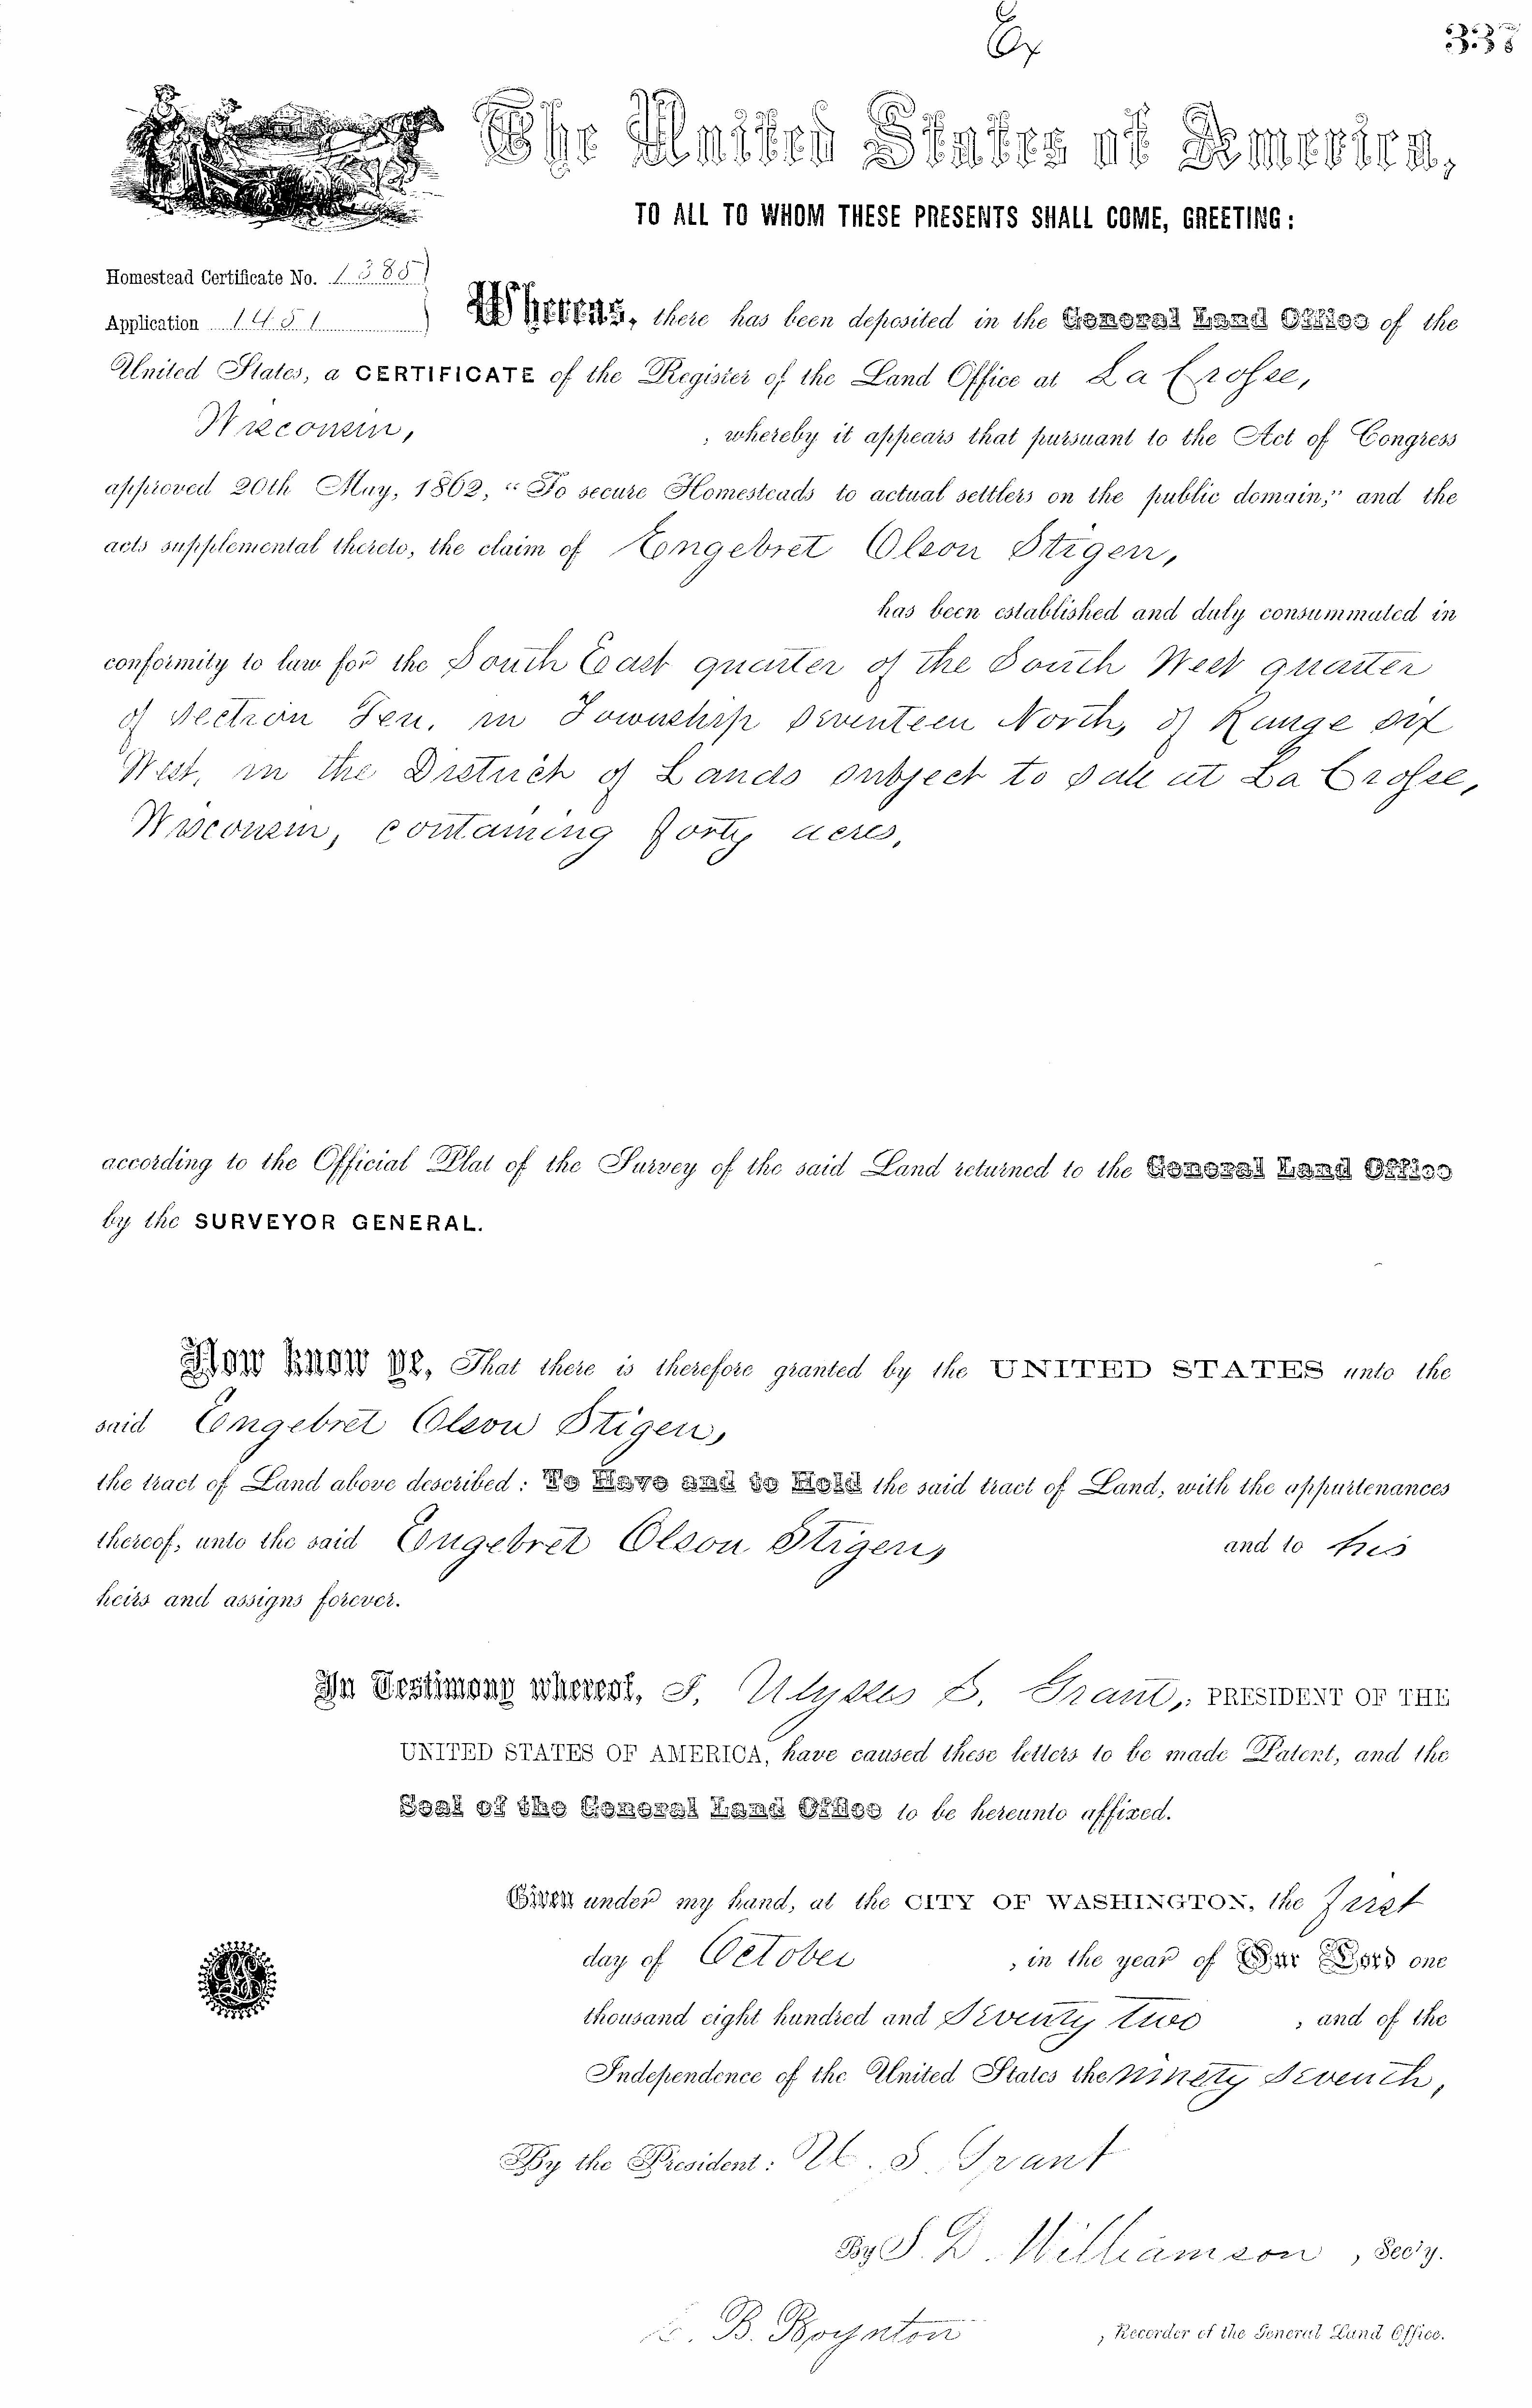 Ex
337
The United States of America,
TO ALL TO WHOM THESE PRESENTS SHALL COME, GREETING:
Homestead Certificate No. 1385
Application 1451
Whereas, there has been deposited in the General Land Office of the
United States, a CERTIFICATE of the Register of the Land Office at La Crosse,
Wisconsin, , whereby it appears that pursuant to the Act of Congress
approved 20th May, 1862, "To secure Homesteads to actual settlers on the public domain," and the
acts supplemental thereto, the claim of Engebret Olson Stigen,
has been established and duly consummated in
conformity to law for the South East quarter of the South West quarter
of Section Ten, in Township Seventeen North, of Range Six
West, in the District of Lands Subject to Sale at La Crosse,
Wisconsin, containing forty acres,
according to the Official Plat of the Survey of the said Land returned to the General Land Office
by the SURVEYOR GENERAL.
Now know ye, That there is therefore granted by the UNITED STATES unto the
said Engebret Olson Stigen,
the tract of Land above described: To Have and to Hold the said tract of Land, with the appurtenances
thereof, unto the said Engebret Olson Stigen, and to his
heirs and assigns forever.
In Testimony whereof, I, Ulysses S. Grant, PRESIDENT OF THE
UNITED STATES OF AMERICA, have caused these letters to be made Patent, and the
Seal of the General Land Office to be hereunto affixed.
Given under my hand, at the CITY OF WASHINGTON, the first
day of October , in the year of Our Lord one
thousand eight hundred and Seventy two , and of the
Independence of the United States the ninety Seventh,
By the President: U. S. Grant
By S. D. Williamson , Sec'y.
B. Boynton , Recorder of the General Land Office.